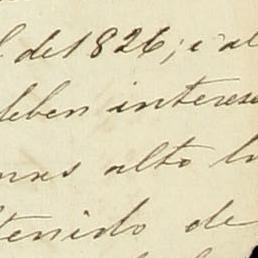 de 1826; i al
deben interes
mas alto lu
tenido de